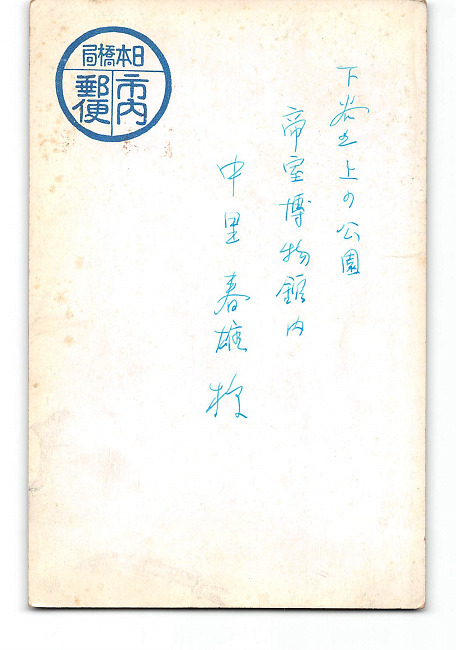 日本橋局
市内
郵便
下谷上の公園
帝室博物館内
中里春雄様